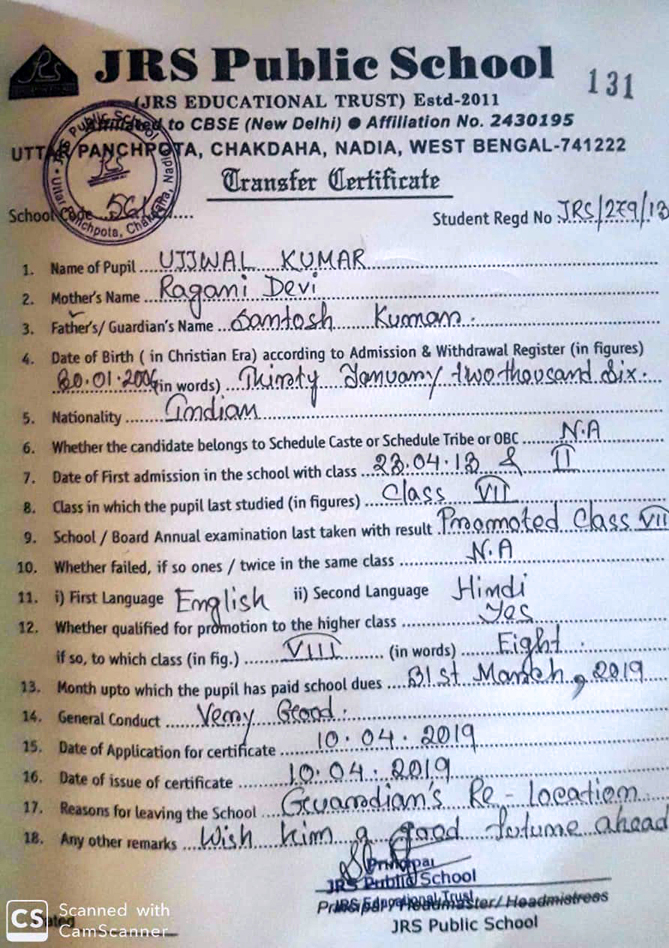 JRS Public School
131
(JRS EDUCATIONAL TRUST) Estd-2011
Affiliated to CBSE (New Delhi) ● Affiliation No. 2430195
UTTAR PANCHPOTA, CHAKDAHA, NADIA, WEST BENGAL-741222
Transfer Certificate
School Code 561
Student Regd No JRS/279/13
1. Name of Pupil UJJWAL KUMAR
2. Mother's Name Ragani Devi
3. Father's/ Guardian's Name Santosh Kumar.
4. Date of Birth ( in Christian Era) according to Admission & Withdrawal Register (in figures)
30.01.2006 (in words) Thirty January two thousand Six.
5. Nationality Indian
6. Whether the candidate belongs to Schedule Caste or Schedule Tribe or OBC N.A
7. Date of First admission in the school with class 23.04.13 & II
8. Class in which the pupil last studied (in figures) Class VII
9. School / Board Annual examination last taken with result Promoted Class VII
10. Whether failed, if so ones / twice in the same class N.A
11. i) First Language English ii) Second Language Hindi
12. Whether qualified for promotion to the higher class Yes
if so, to which class (in fig.) VIII (in words) Eight.
13. Month upto which the pupil has paid school dues 31st March, 2019
14. General Conduct Very Good.
15. Date of Application for certificate 10.04.2019
16. Date of issue of certificate 10.04.2019
17. Reasons for leaving the School Guardian's Re-location
18. Any other remarks Wish him a good future ahead
Principal
JRS Public School
JRS Educational Trust
Principal / Headmaster/ Headmistress
JRS Public School
CS Scanned with
CamScanner